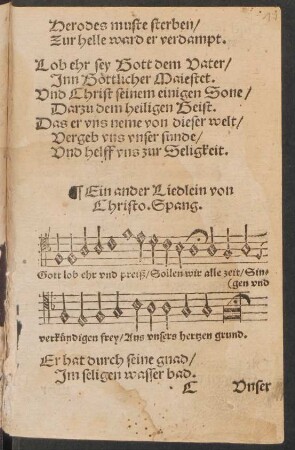 Herodes muste sterben/
Zur helle ward er verdampt.
Lob ehr sey Gott dem Vater/
Inn Göttlicher Maiestet.
Vnd Christ seinem einigen Sone/
Darzu dem heiligen Geist.
Das er vns neme von dieser welt/
Vergeb vns vnser sunde/
Vnd helff vns zur Seligkeit.
¶ Ein ander Liedlein von
Christo. Spang.
Gott lob ehr vnd preiß/ Sollen wir alle zeit/ Sin-
(gen vnd
verkündigen frey/ Aus vnsers hertzen grund.
Er hat durch seine gnad/
Im seligen wasser bad.
C Vnser